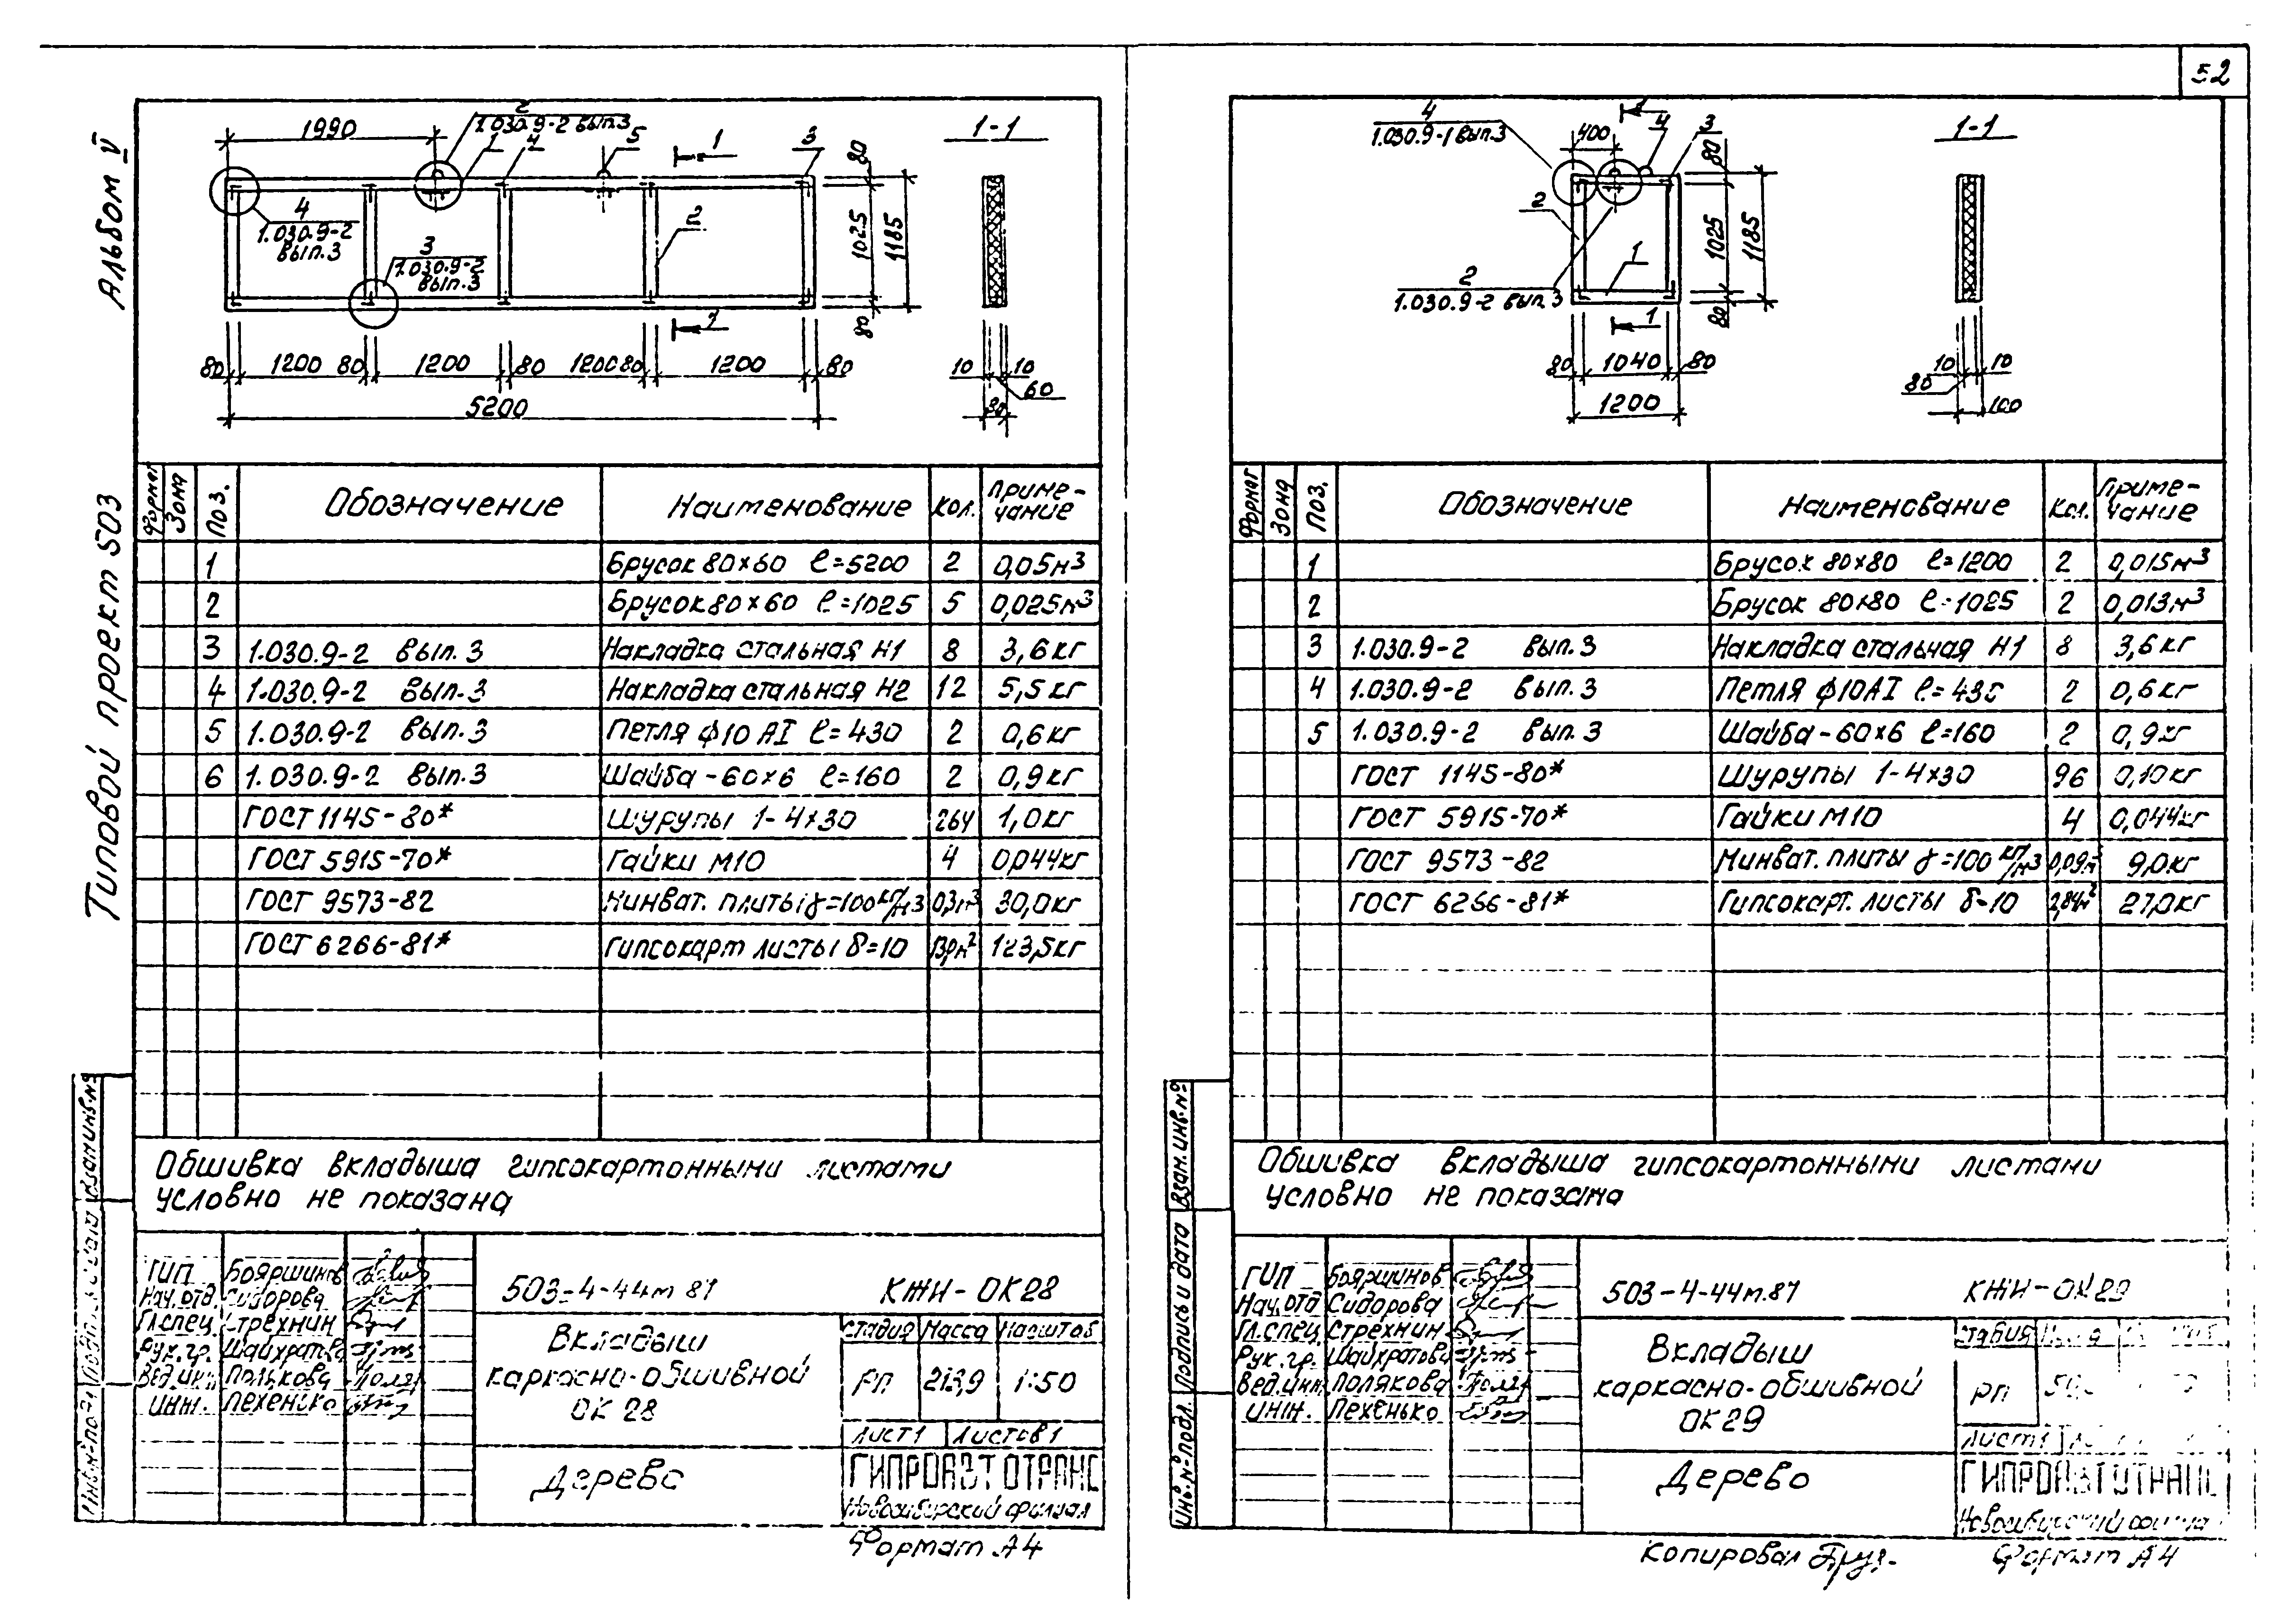 52
Альбом V
Типовой проект 503
1990
2
1.030.9-2 вып.3
1
4
5
1
3
80
1-1
4
1.030.9-2
вып.3
3
1.030.9-2
вып.3
2
1025
1185
80
1
80 1200 80 1200 80 1200 80 1200 80
5200
10 10
60
80
Формат Зона Поз. Обозначение Наименование Кол. Приме-
чание
1 Брусок 80×60 ℓ=5200 2 0,05м³
2 Брусок 80×60 ℓ=1025 5 0,025м³
3 1.030.9-2 вып.3 Накладка стальная Н1 8 3,6кг
4 1.030.9-2 вып.3 Накладка стальная Н2 12 5,5кг
5 1.030.9-2 вып.3 Петля ϕ10 АI ℓ=430 2 0,6кг
6 1.030.9-2 вып.3 Шайба -60×6 ℓ=160 2 0,9кг
ГОСТ 1145-80* Шурупы 1-4×30 264 1,0кг
ГОСТ 5915-70* Гайки М10 4 0,044кг
ГОСТ 9573-82 Минват. плиты γ=100 кг/м3 0,3м³ 30,0кг
ГОСТ 6266-81* Гипсокарт листы δ=10 13,0м² 123,5кг
Обшивка вкладыша гипсокартонными листами
условно не показана
ГИП Бояршинов
Нач.отд Сидорова
Гл.спец Стрехнин
Рук.гр. Шайхратова
Вед.инж Полякова
инж. Пехенько
503-4-44м 87 КЖИ-ОК28
Вкладыш
каркасно-обшивной
ОК 28
Стадия Масса Масштаб
РП 213,9 1:50
Лист 1 Листов 1
Дерево
ГИПРОАВТОТРАНС
Новосибирский филиал
Формат А4
Взам.инв.№
Инв.№ подл
4
1.030.9-1 вып.3
1
400
4
3
80
1-1
2
2
1.030.9-2 вып 3
1
1025
1185
80
1
80 1040 80
1200
10 10
80
100
Формат Зона Поз. Обозначение Наименование Кол. Приме-
чание
1 Брусок 80×80 ℓ=1200 2 0,015м³
2 Брусок 80×80 ℓ=1025 2 0,013м³
3 1.030.9-2 вып.3 Накладка стальная Н1 8 3,6кг
4 1.030.9-2 вып.3 Петля ϕ10АI ℓ=430 2 0,6кг
5 1.030.9-2 вып.3 Шайба -60×6 ℓ=160 2 0,9кг
ГОСТ 1145-80* Шурупы 1-4×30 96 0,10кг
ГОСТ 5915-70* Гайки М10 4 0,044кг
ГОСТ 9573-82 Минват. плиты γ=100 кг/м3 0,09м³ 9,0кг
ГОСТ 6266-81* Гипсокарт. листы δ=10 2,84м² 27,0кг
Обшивка вкладыша гипсокартонными листами
условно не показана
ГИП Бояршинов
Нач.отд Сидорова
Гл.спец. Стрехнин
Рук.гр. Шайхратова
Вед.инж. Полякова
инж. Пехенько
503-4-44м.87 КЖИ-ОК29
Вкладыш
каркасно-обшивной
ОК 29
Стадия
РП
Лист 1
Дерево
ГИПРОАВТОТРАНС
Новосибирский филиал
Взам.инв.№
Подпись и дата
Инв.№ подл.
Копировал
Формат А4